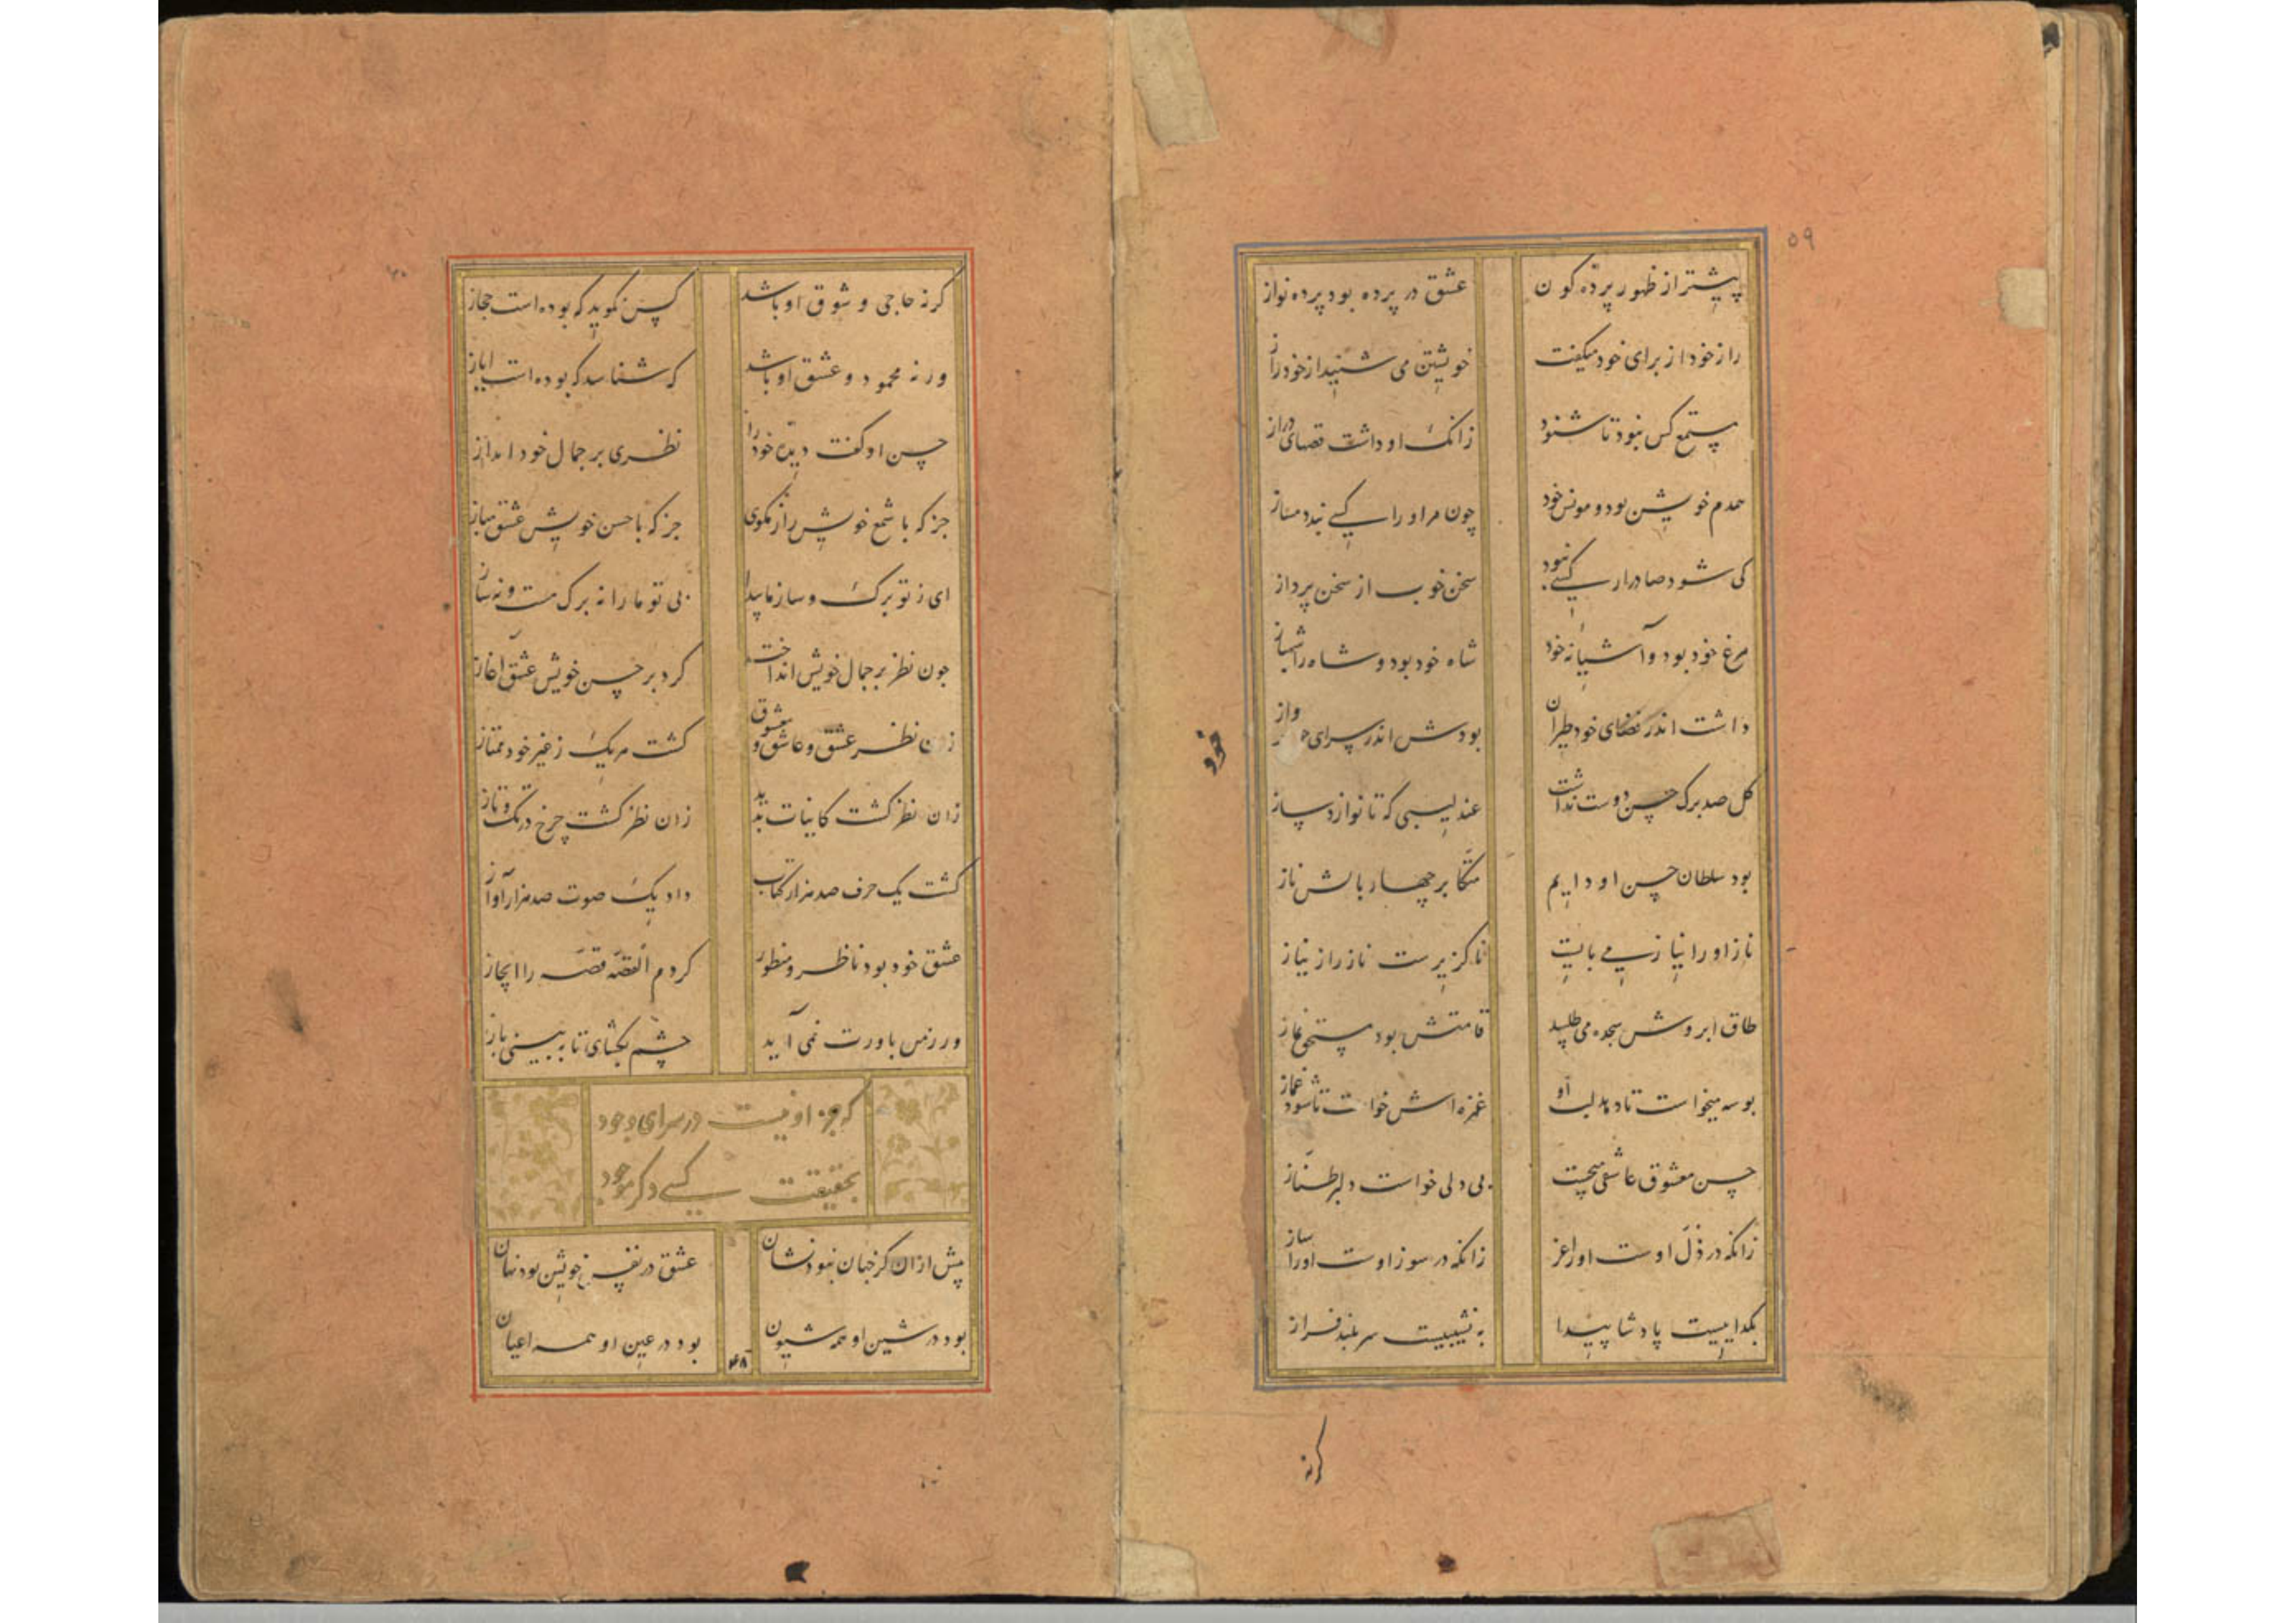 ۵۹
پیشتر از ظهور پرده کون عشق در پرده بود پرده نواز
راز خود از برای خود میکفت خویشتن می شنید از خود راز
مستمع کس نبود تا شنود زانک او داشت قصهای دراز
همدم خویشتن بود و مونس خود چون مر او را کسی نبد دمساز
کی شود صادر از کسی که نبود سخن خوب از سخن پرداز
مرغ خود بود و آشیانه خود شاه خود بود و شاه را شهباز
داشت اندر فضای خود طیران بودش اندر سرای خود پرواز
خود
کل صد برک حسن دوست نداشت عندلیبی که تا نوازد ساز
بود سلطان حسن او دایم متکا بر چهار بالش ناز
ناز او را نیاز می بایست ناکزیرست ناز را ز نیاز
طاق ابروش سجده می طلبید قامتش بود مستحق نماز
بوسه میخواست تا دهد لب او غمزه اش خواست تا شود غماز
حسن معشوق عاشقی میجست بی دلی خواست دلبر طناز
زانکه در ذل اوست او را عز زانکه در سوز اوست او را ساز
بکداییست پادشا پیدا به نشیبیست سر بلند فراز
کرنه
۶۰
کرنه حاجی و شوق او باشد کس نکوید که بوده است حجاز
ور نه محمود و عشق او باشد که شناسد که بوده است ایاز
حسن او کفت دیده خود را نظری بر جمال خود انداز
جز که با سمع خویش راز مکوی جز که با حسن خویش عشق مباز
ای ز تو برک و ساز ما پیدا بی تو ما را نه برک هست و نه ساز
چون نظر بر جمال خویش انداخت کرد بر حسن خویش عشق آغاز
زان نظر عشق و عاشق و معشوق کشت هر یک ز غیر خود ممتاز
زان نظر کشت کاینات بدید زان نظر کشت چرخ در تک و تاز
کشت یک حرف صد هزار کتاب داد یک صوت صد هزار آواز
عشق خود بود ناظر و منظور کردم القصه قصه را ایجاز
ور ز من باورت نمی آید چشم بکشای تا به بینی باز
که جز او نیست در سرای وجود
بحقیقت کسی دکر موجود
پیش از ان کز جهان نبود نشان عشق در نفس خویشتن بود نهان
بود در شین او همه شیون بود در عین او همه اعیان
۴۸